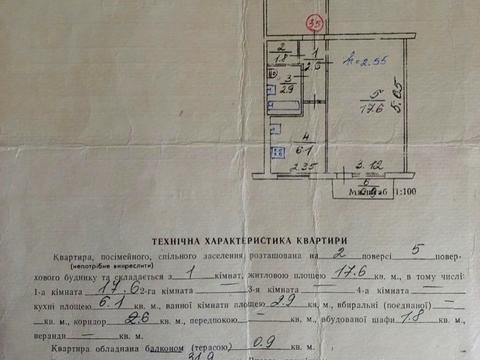 35
2
1.8
1
2.6
h=2.55
3
2.9
5
17.6
5.05
4
6.1
2.35
3.12
6
0.9
Масштаб 1:100
ТЕХНІЧНА ХАРАКТЕРИСТИКА КВАРТИРИ
Квартира, посімейного, спільного заселення розташована на 2 поверсі 5 повер-
(непотрібне викреслити)
хового будинку та складається з 1 кімнат, житловою площею 17.6 кв. м., в тому числі:
1-а кімната 17.6 2-га кімната — 3-я кімната — 4-а кімната —
кухні площею 6.1 кв. м., ванної кімнати площею 2.9 кв. м., вбиральні (поєднаної) —
— кв. м., коридор 2.6 кв. м., передпокою — кв. м., вбудованої шафи 1.8 кв. м.,
веранди — кв. м.
Квартира обладнана балконом (терасою) 0.9 кв. м.
31.9